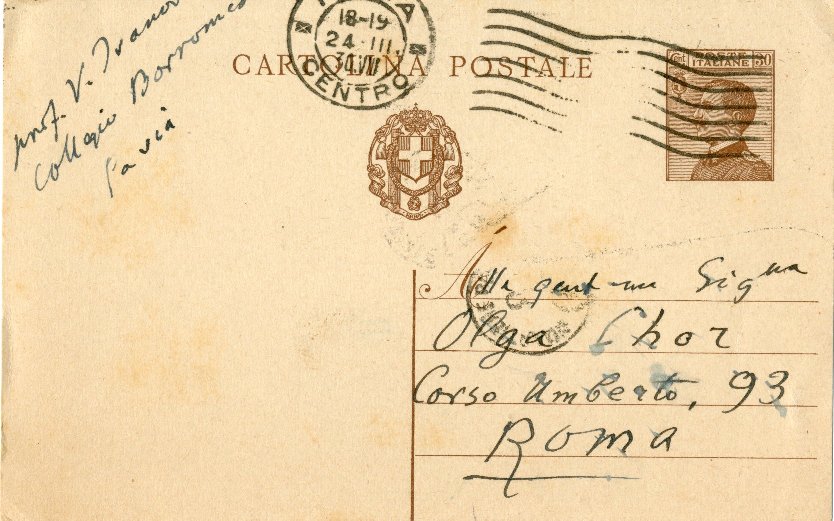 prof. V. Ivanov
Collegio Borromeo
Pavia
18-19
24 · III.
CENTRO
CARTOLINA POSTALE
POSTE
ITALIANE
Ct
30
Alla gent-ma Sigña
Olga Chor
Corso Umberto, 93
Roma